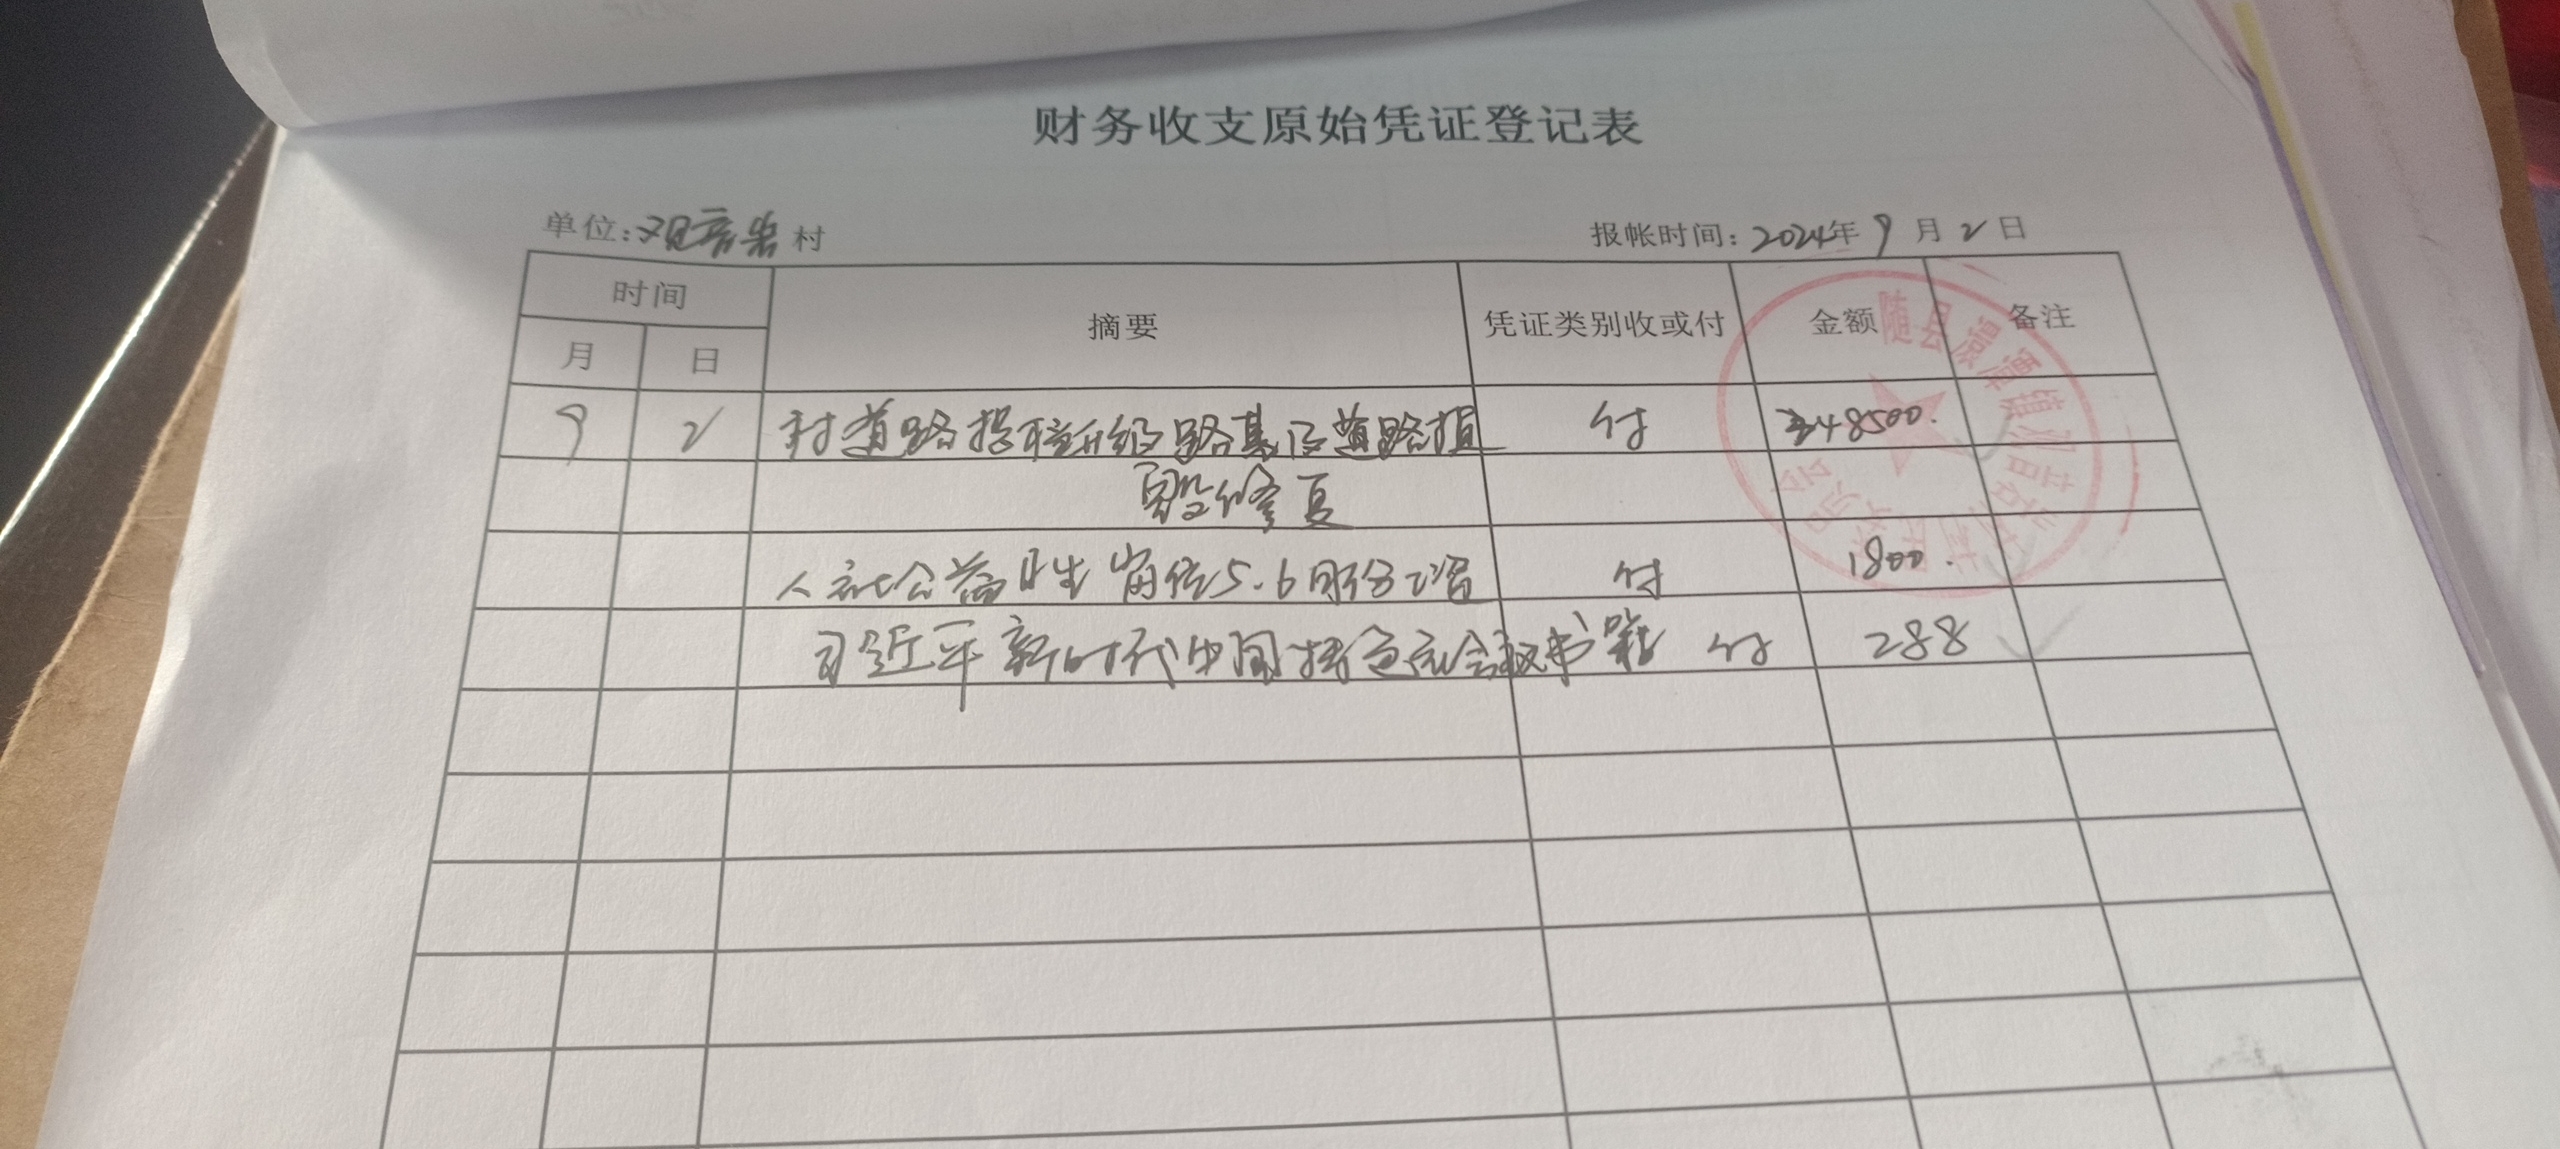 财务收支原始凭证登记表
单位：观音岩村
报帐时间：2024年9月2日
时间
摘要
凭证类别收或付
金额
备注
月
日
9 2 村道路提档升级路基及道路损 付 48500.
毁修复
人社公益性岗位5.6月份工资 付 1800.
习近平新时代中国特色社会主义书籍 付 288
随县 镇观音岩村村民委员会